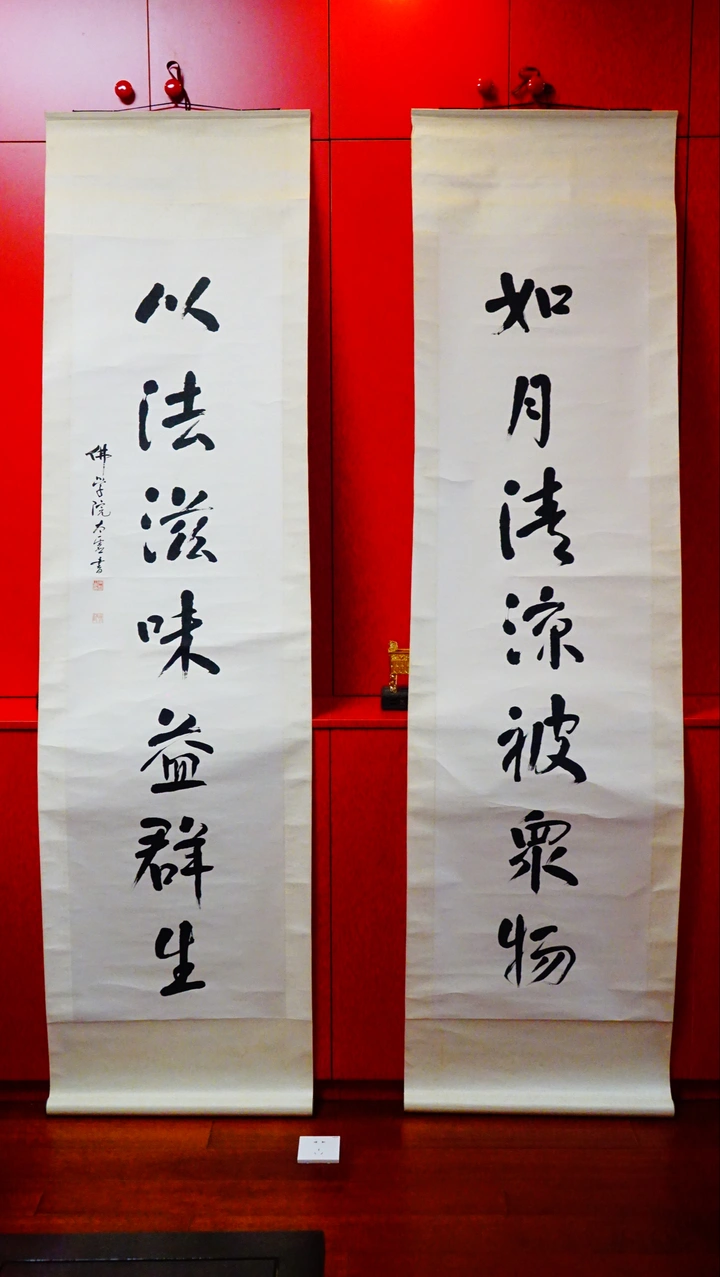 如月清涼被衆物
以法滋味益群生
佛学院太虚書